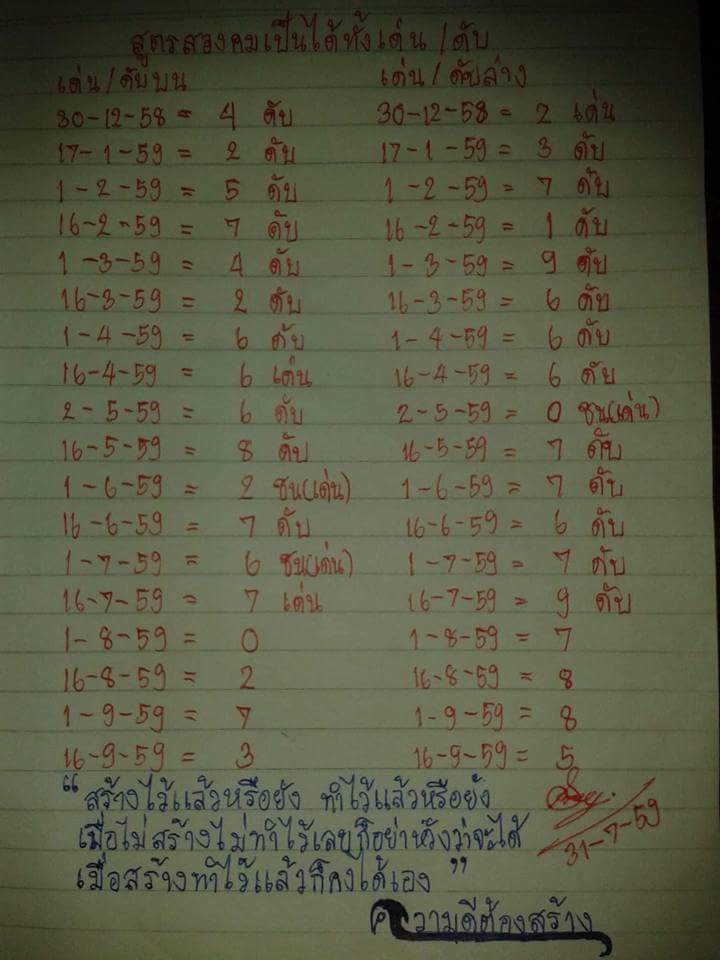 สูตรสองคมเป็นได้ทั้งเด่น/ดับ
เด่น/ดับบน เด่น/ดับล่าง
30-12-58 = 4 ดับ 30-12-58 = 2 เด่น
17-1-59 = 2 ดับ 17-1-59 = 3 ดับ
1-2-59 = 5 ดับ 1-2-59 = 7 ดับ
16-2-59 = 7 ดับ 16-2-59 = 1 ดับ
1-3-59 = 4 ดับ 1-3-59 = 9 ดับ
16-3-59 = 2 ดับ 16-3-59 = 6 ดับ
1-4-59 = 6 ดับ 1-4-59 = 6 ดับ
16-4-59 = 6 เด่น 16-4-59 = 6 ดับ
2-5-59 = 6 ดับ 2-5-59 = 0 ชน(เด่น)
16-5-59 = 8 ดับ 16-5-59 = 7 ดับ
1-6-59 = 2 ชน(เด่น) 1-6-59 = 7 ดับ
16-6-59 = 7 ดับ 16-6-59 = 6 ดับ
1-7-59 = 6 ชน(เด่น) 1-7-59 = 7 ดับ
16-7-59 = 7 เด่น 16-7-59 = 9 ดับ
1-8-59 = 0 1-8-59 = 7
16-8-59 = 2 16-8-59 = 8
1-9-59 = 7 1-9-59 = 8
16-9-59 = 3 16-9-59 = 5
“สร้างไว้แล้วหรือยัง ทำไว้แล้วหรือยัง
เมื่อไม่สร้างไม่ทำไว้เลยก็อย่าหวังว่าจะได้
เมื่อสร้างทำไว้แล้วก็คงได้เอง”
31-7-59
ความดีต้องสร้าง